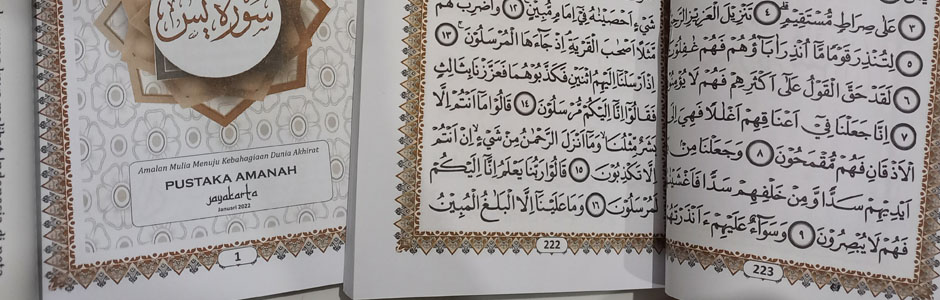 سورة يس
Amalan Mulia Menuju Kebahagiaan Dunia Akhirat
PUSTAKA AMANAH
jayakarta
Januari 2022
1
شَيْءٍ اَحْصَيْنٰهُ فِيْٓ اِمَامٍ مُّبِيْنٍ ١٢ وَاضْرِبْ لَهُمْ
مَّثَلًا اَصْحٰبَ الْقَرْيَةِۘ اِذْ جَاۤءَهَا الْمُرْسَلُوْنَۚ ١٣
اِذْ اَرْسَلْنَآ اِلَيْهِمُ اثْنَيْنِ فَكَذَّبُوْهُمَا فَعَزَّزْنَا بِثَالِثٍ
فَقَالُوْٓا اِنَّآ اِلَيْكُمْ مُّرْسَلُوْنَ ١٤ قَالُوْا مَآ اَنْتُمْ اِلَّا
بَشَرٌ مِّثْلُنَاۙ وَمَآ اَنْزَلَ الرَّحْمٰنُ مِنْ شَيْءٍۙ اِنْ اَنْتُمْ
اِلَّا تَكْذِبُوْنَ ١٥ قَالُوْا رَبُّنَا يَعْلَمُ اِنَّآ اِلَيْكُمْ
لَمُرْسَلُوْنَ ١٦ وَمَا عَلَيْنَآ اِلَّا الْبَلٰغُ الْمُبِيْنُ
222
٣ عَلٰى صِرَاطٍ مُّسْتَقِيْمٍۗ ٤ تَنْزِيْلَ الْعَزِيْزِ
٥ لِتُنْذِرَ قَوْمًا مَّآ اُنْذِرَ اٰبَاۤؤُهُمْ فَهُمْ غٰفِلُوْنَ
٦ لَقَدْ حَقَّ الْقَوْلُ عَلٰٓى اَكْثَرِهِمْ فَهُمْ لَا
٧ اِنَّا جَعَلْنَا فِيْٓ اَعْنَاقِهِمْ اَغْلٰلًا فَهِيَ
الْاَذْقَانِ فَهُمْ مُّقْمَحُوْنَ ٨ وَجَعَلْنَا مِنْ
اَيْدِيْهِمْ سَدًّا وَّمِنْ خَلْفِهِمْ سَدًّا
فَهُمْ لَا يُبْصِرُوْنَ ٩ وَسَوَاۤءٌ عَلَيْهِمْ
223